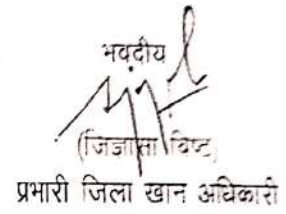 भवदीय
(जिज्ञासा बिष्ट)
प्रभारी जिला खान अधिकारी